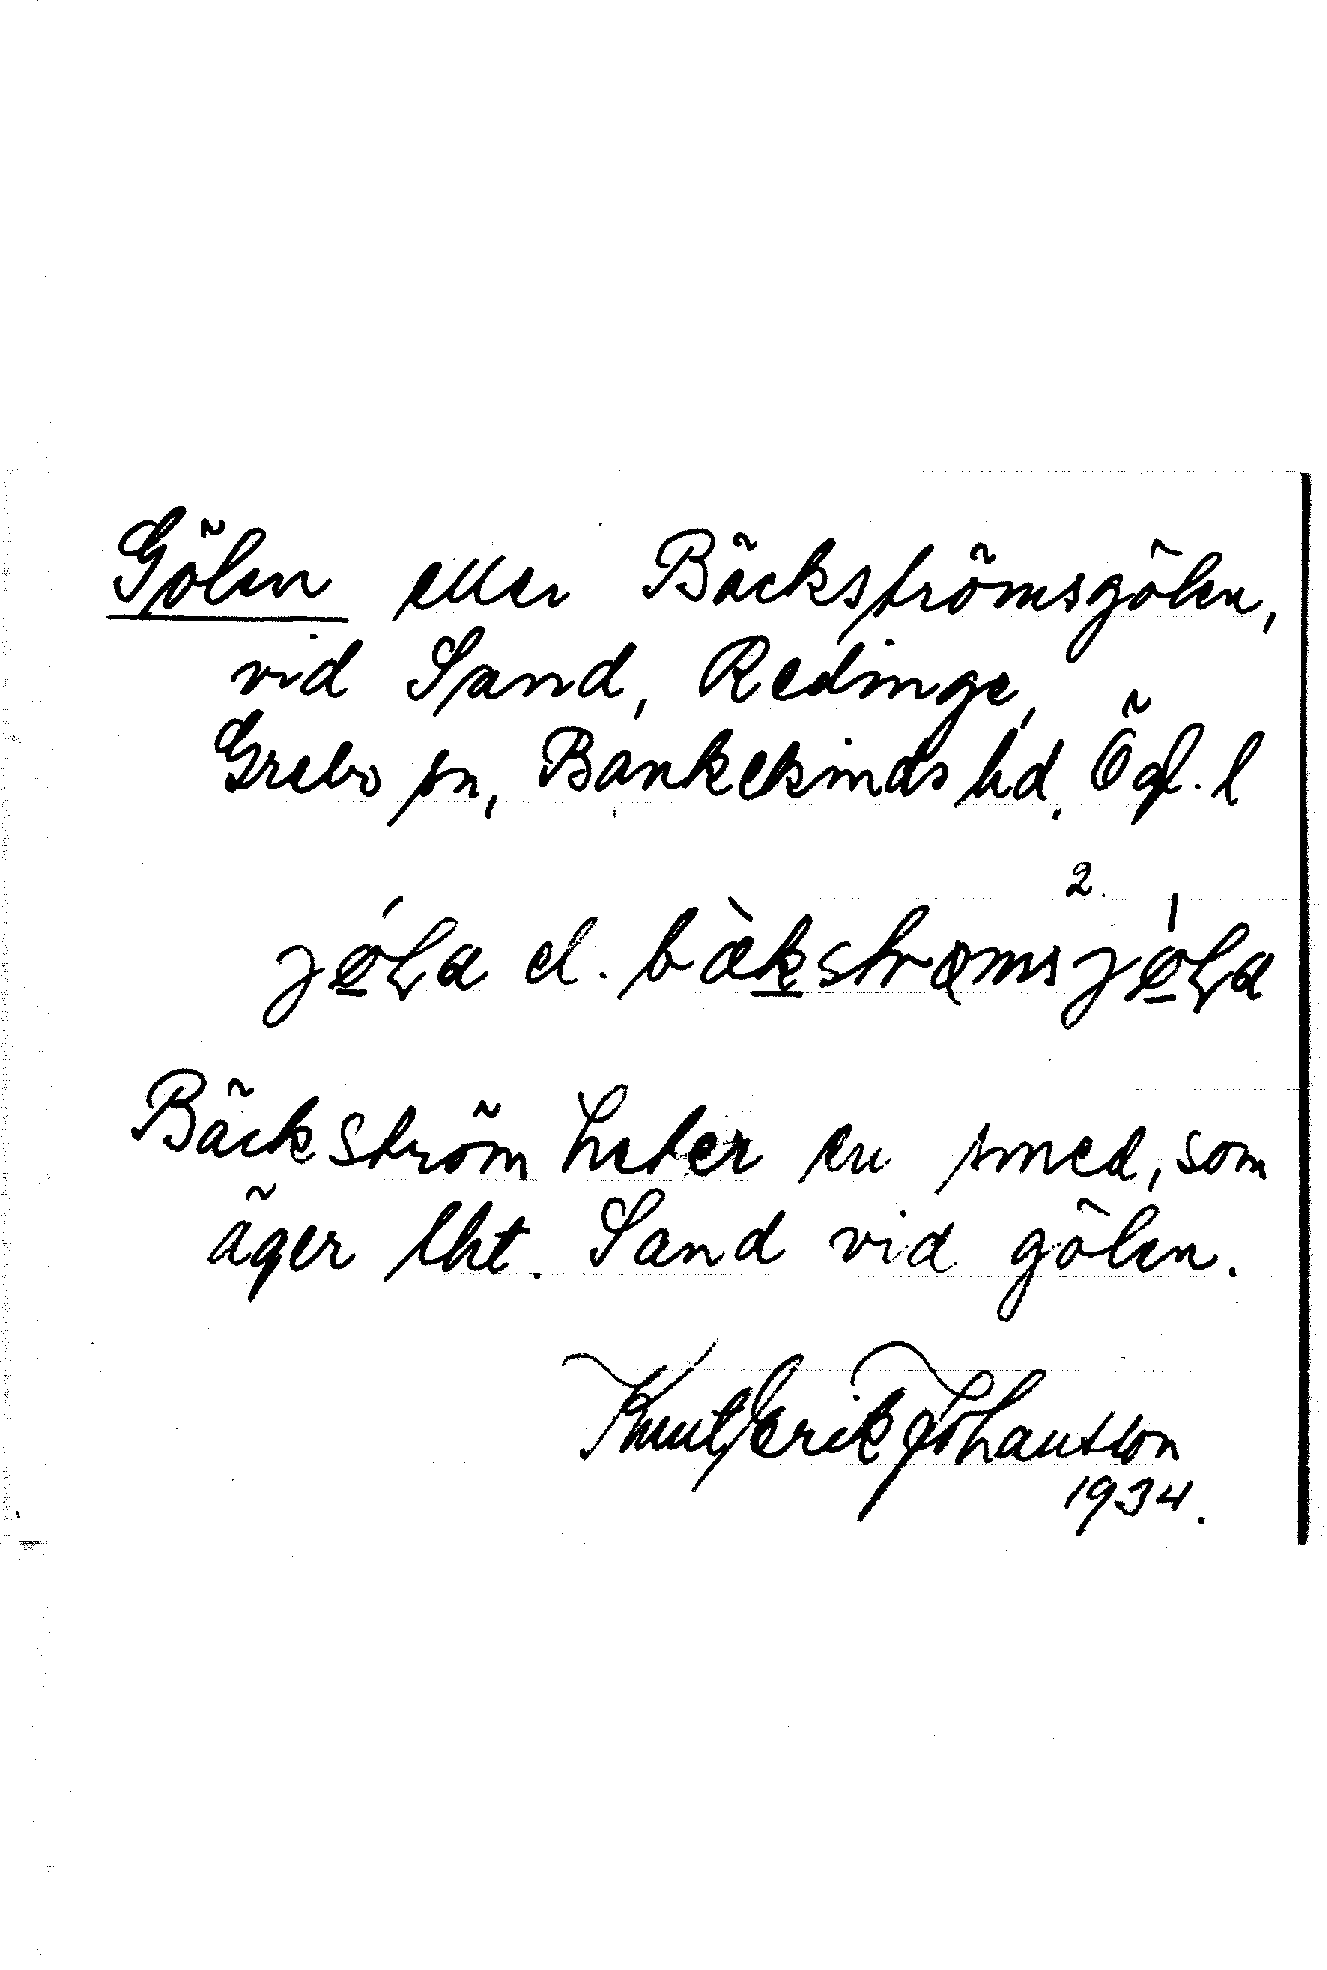 Gölen eller Bäckströmsgölen,
vid Sand, Redinge,
Grebo sn, Bankekinds hd. Ögl. l
2.
jǿɫa el. bæ̀kstrømsjø̍ɫa
Bäckström heter en smed, som
äger lht. Sand vid gölen.
Knut Erik Johansson
1934.